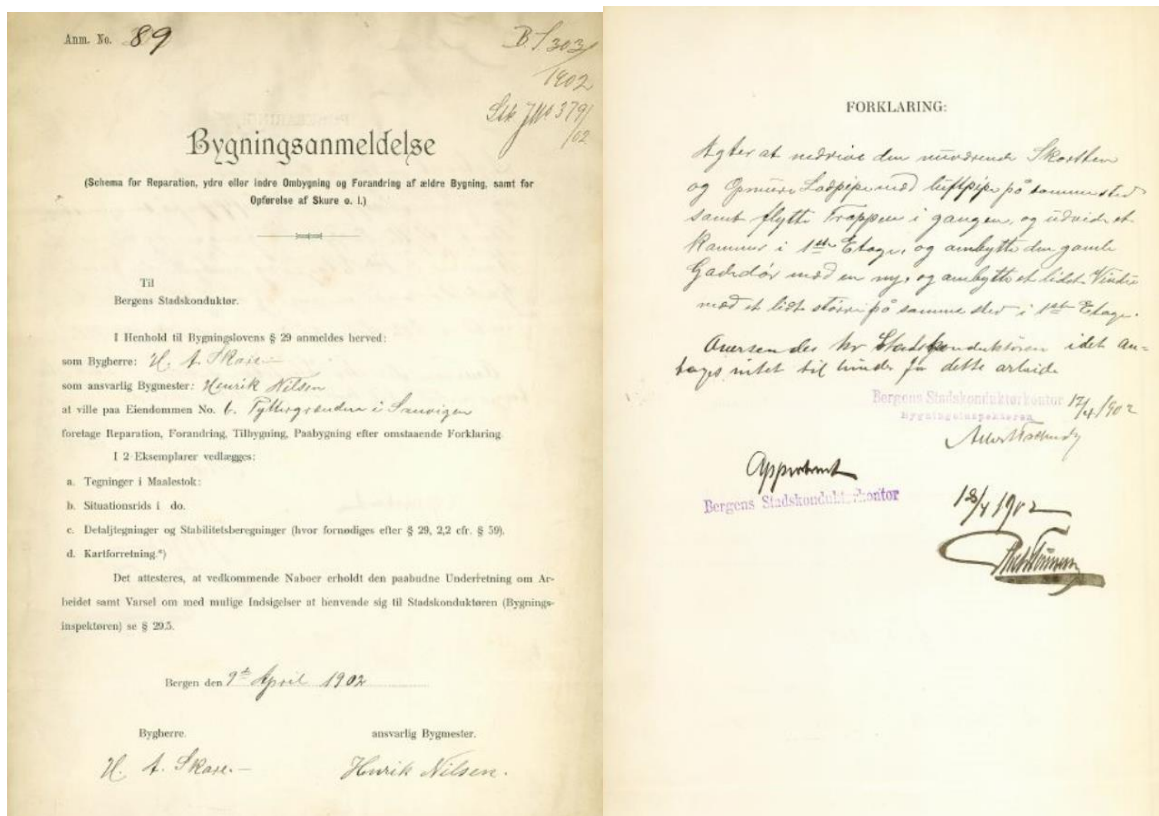 Anm. No. 89
B. S 303/
1902
Stk JNo 379/
02
Bygningsanmeldelse
(Schema for Reparation, ydre eller indre Ombygning og Forandring af ældre Bygning, samt for
Opførelse af Skure o. l.)
Til
Bergens Stadskonduktør.
I Henhold til Bygningslovens § 29 anmeldes herved:
som Bygherre: H. A. Skare
som ansvarlig Bygmester: Henrik Nilsen
at ville paa Eiendommen No. 6. Pyttergrænden i Sanvigen
foretage Reparation, Forandring, Tilbygning, Paabygning efter omstaaende Forklaring
I 2 Eksemplarer vedlægges:
a. Tegninger i Maalestok:
b. Situationsrids i do.
c. Detaljtegninger og Stabilitetsberegninger (hvor fornødiges efter § 29, 2,2 cfr. § 59).
d. Kartforretning.*)
Det attesteres, at vedkommende Naboer erholdt den paabudne Underretning om Ar-
beidet samt Varsel om med mulige Indsigelser at henvende sig til Stadskonduktøren (Bygnings-
inspektøren) se § 29.5.
Bergen den 9de April 1902
Bygherre.
ansvarlig Bygmester.
H. A. Skare.—
Henrik Nilsen.
FORKLARING:
Agter at nedrive den nuværende Skorsten
og Opmure Ladpipe med luftpipe på samme sted
samt flytte Trappen i gangen, og udvide et
Kammer i 1ste Etage, og ombytte den gamle
Gadedør med en ny, og ombytte et lidet Vindu
med et lidt större på samme sted i 1ste Etage.
Oversendes hr Stadskonduktören idet an-
tages intet til hinder for dette arbeide
Bergens Stadskonduktørkontor 12/4 1902
Bygningsinspektøren
Approberet
Bergens Stadskonduktørkontor
18/4 1902